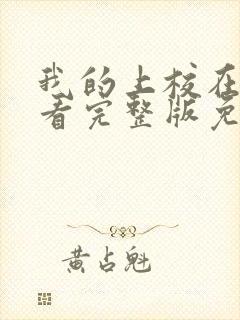 我的上校在
看完整版免
黄占魁